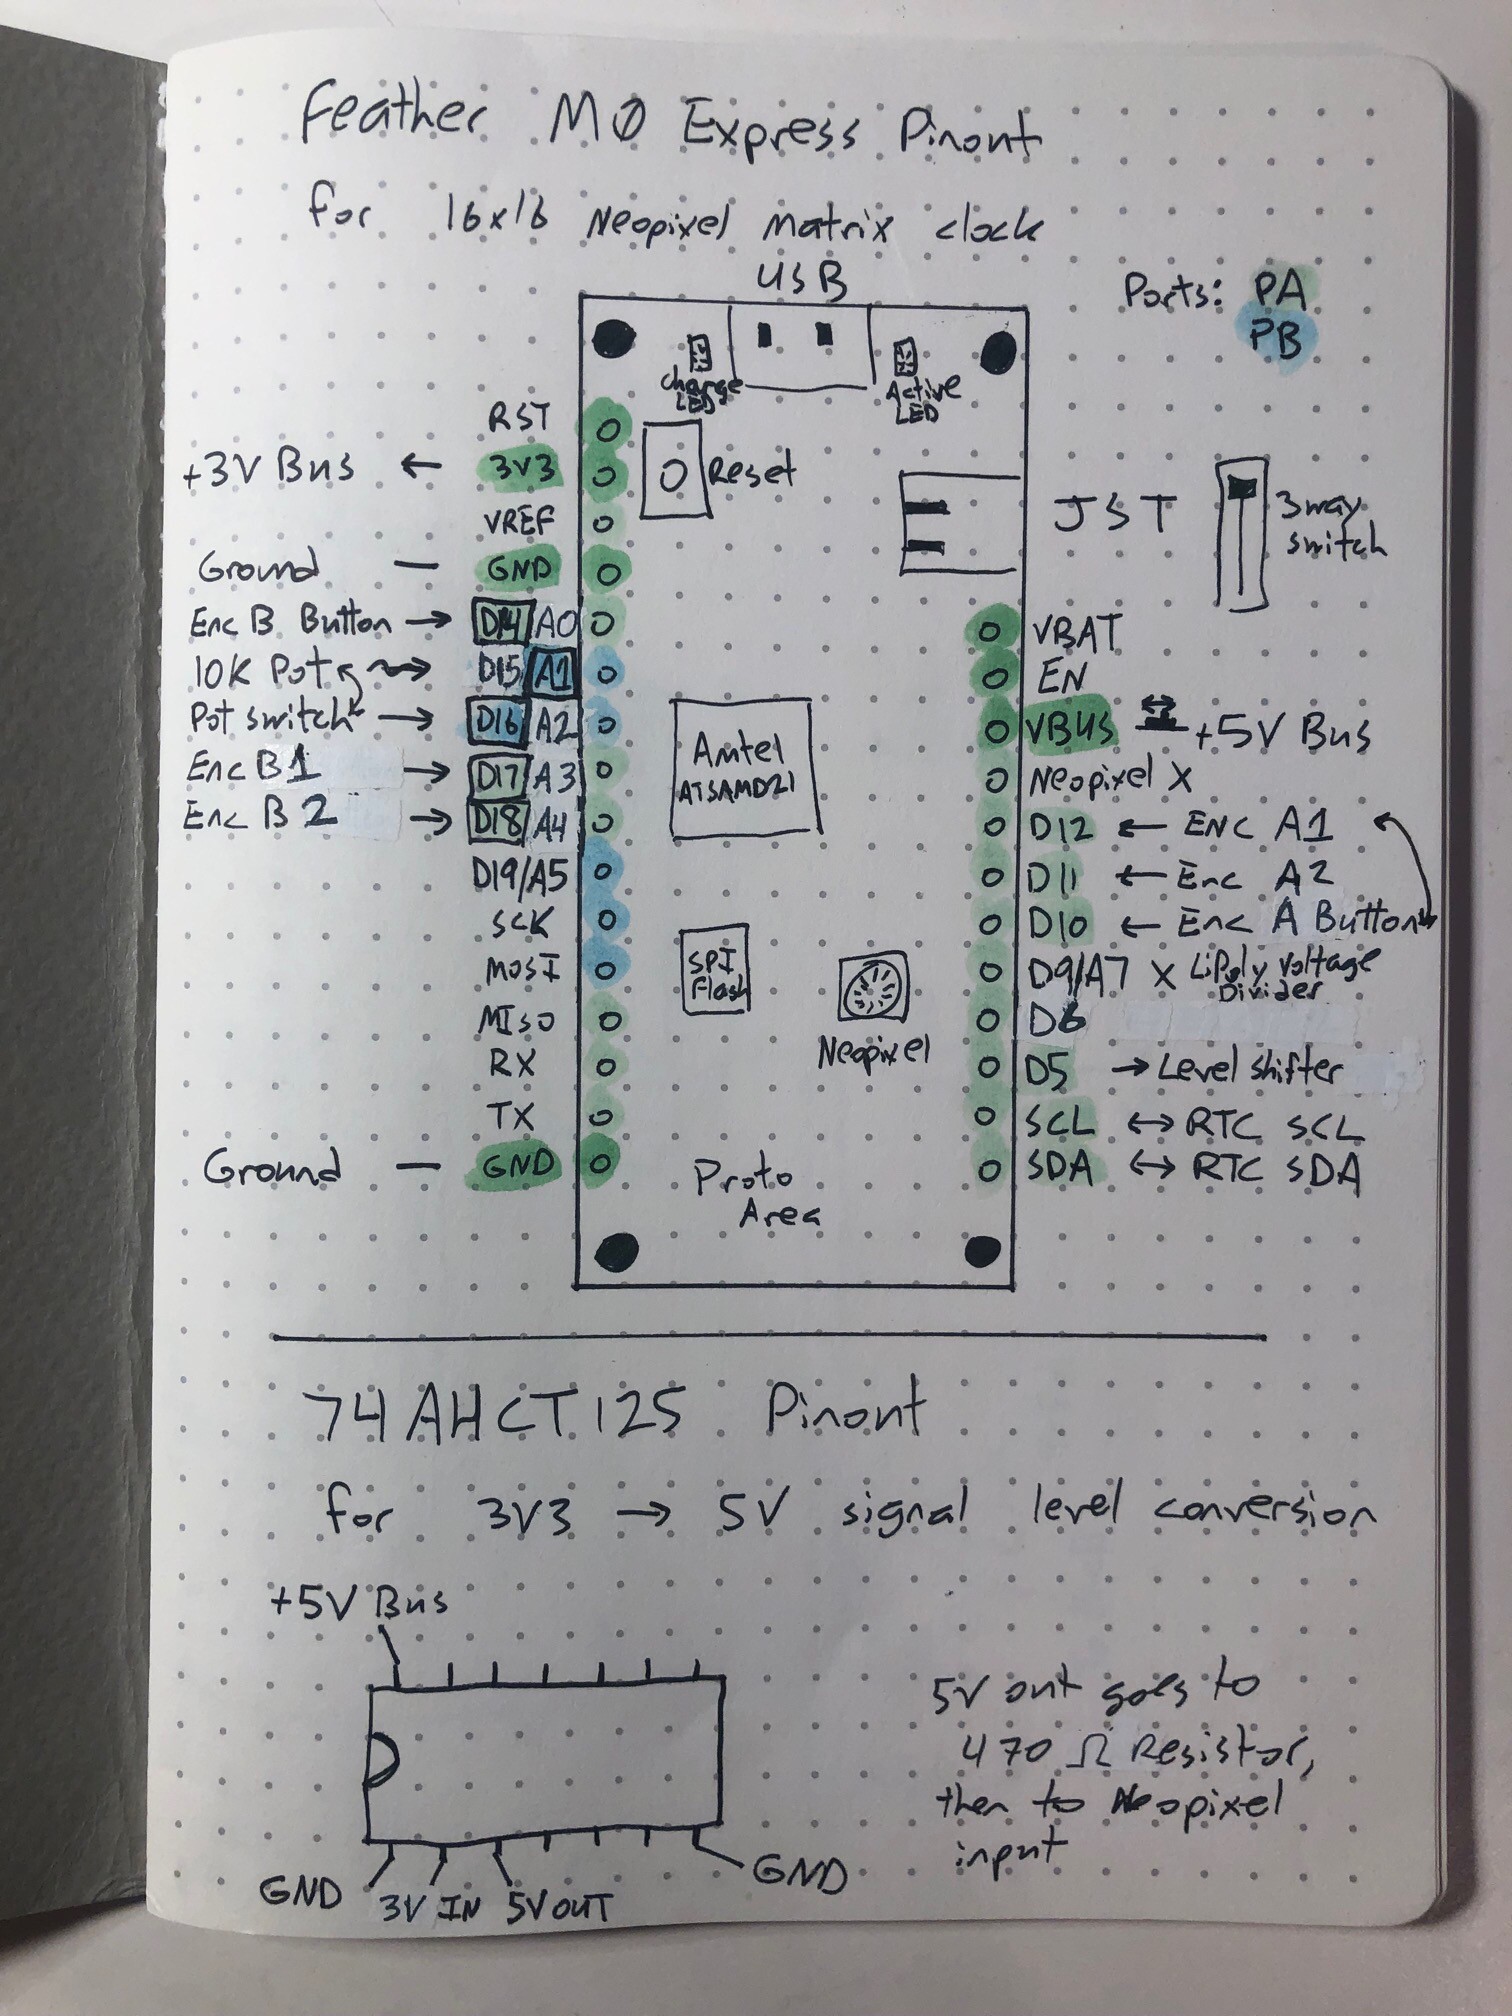 Feather MØ Express Pinout
for 16x16 Neopixel matrix clock
USB
Ports: PA
PB
Charge
LED
Active
LED
RST
+3V Bus ← 3V3
Reset
VREF
JST
3way
switch
Ground — GND
Enc B Button → D14/A0
VBAT
10K Pot → D15 A1
EN
Pot switch → D16 A2
VBUS ↔ +5V Bus
Amtel
ATSAMD21
Enc B1 → D17 A3
Neopixel X
Enc B2 → D18 A4
D12 ← ENC A1
D19/A5
D11 ← Enc A2
SCK
D10 ← Enc A Button
MOSI
SPI
Flash
D9/A7 X Lipoly Voltage
Divider
MISO
Neopixel
D6
RX
D5 → Level shifter
TX
SCL ↔ RTC SCL
Ground — GND
SDA ↔ RTC SDA
Proto
Area
74AHCT125 Pinout
for 3V3 → 5V signal level conversion
+5V Bus
5V out goes to
470 Ω Resistor,
then to Neopixel
input
GND 3V IN 5V OUT GND